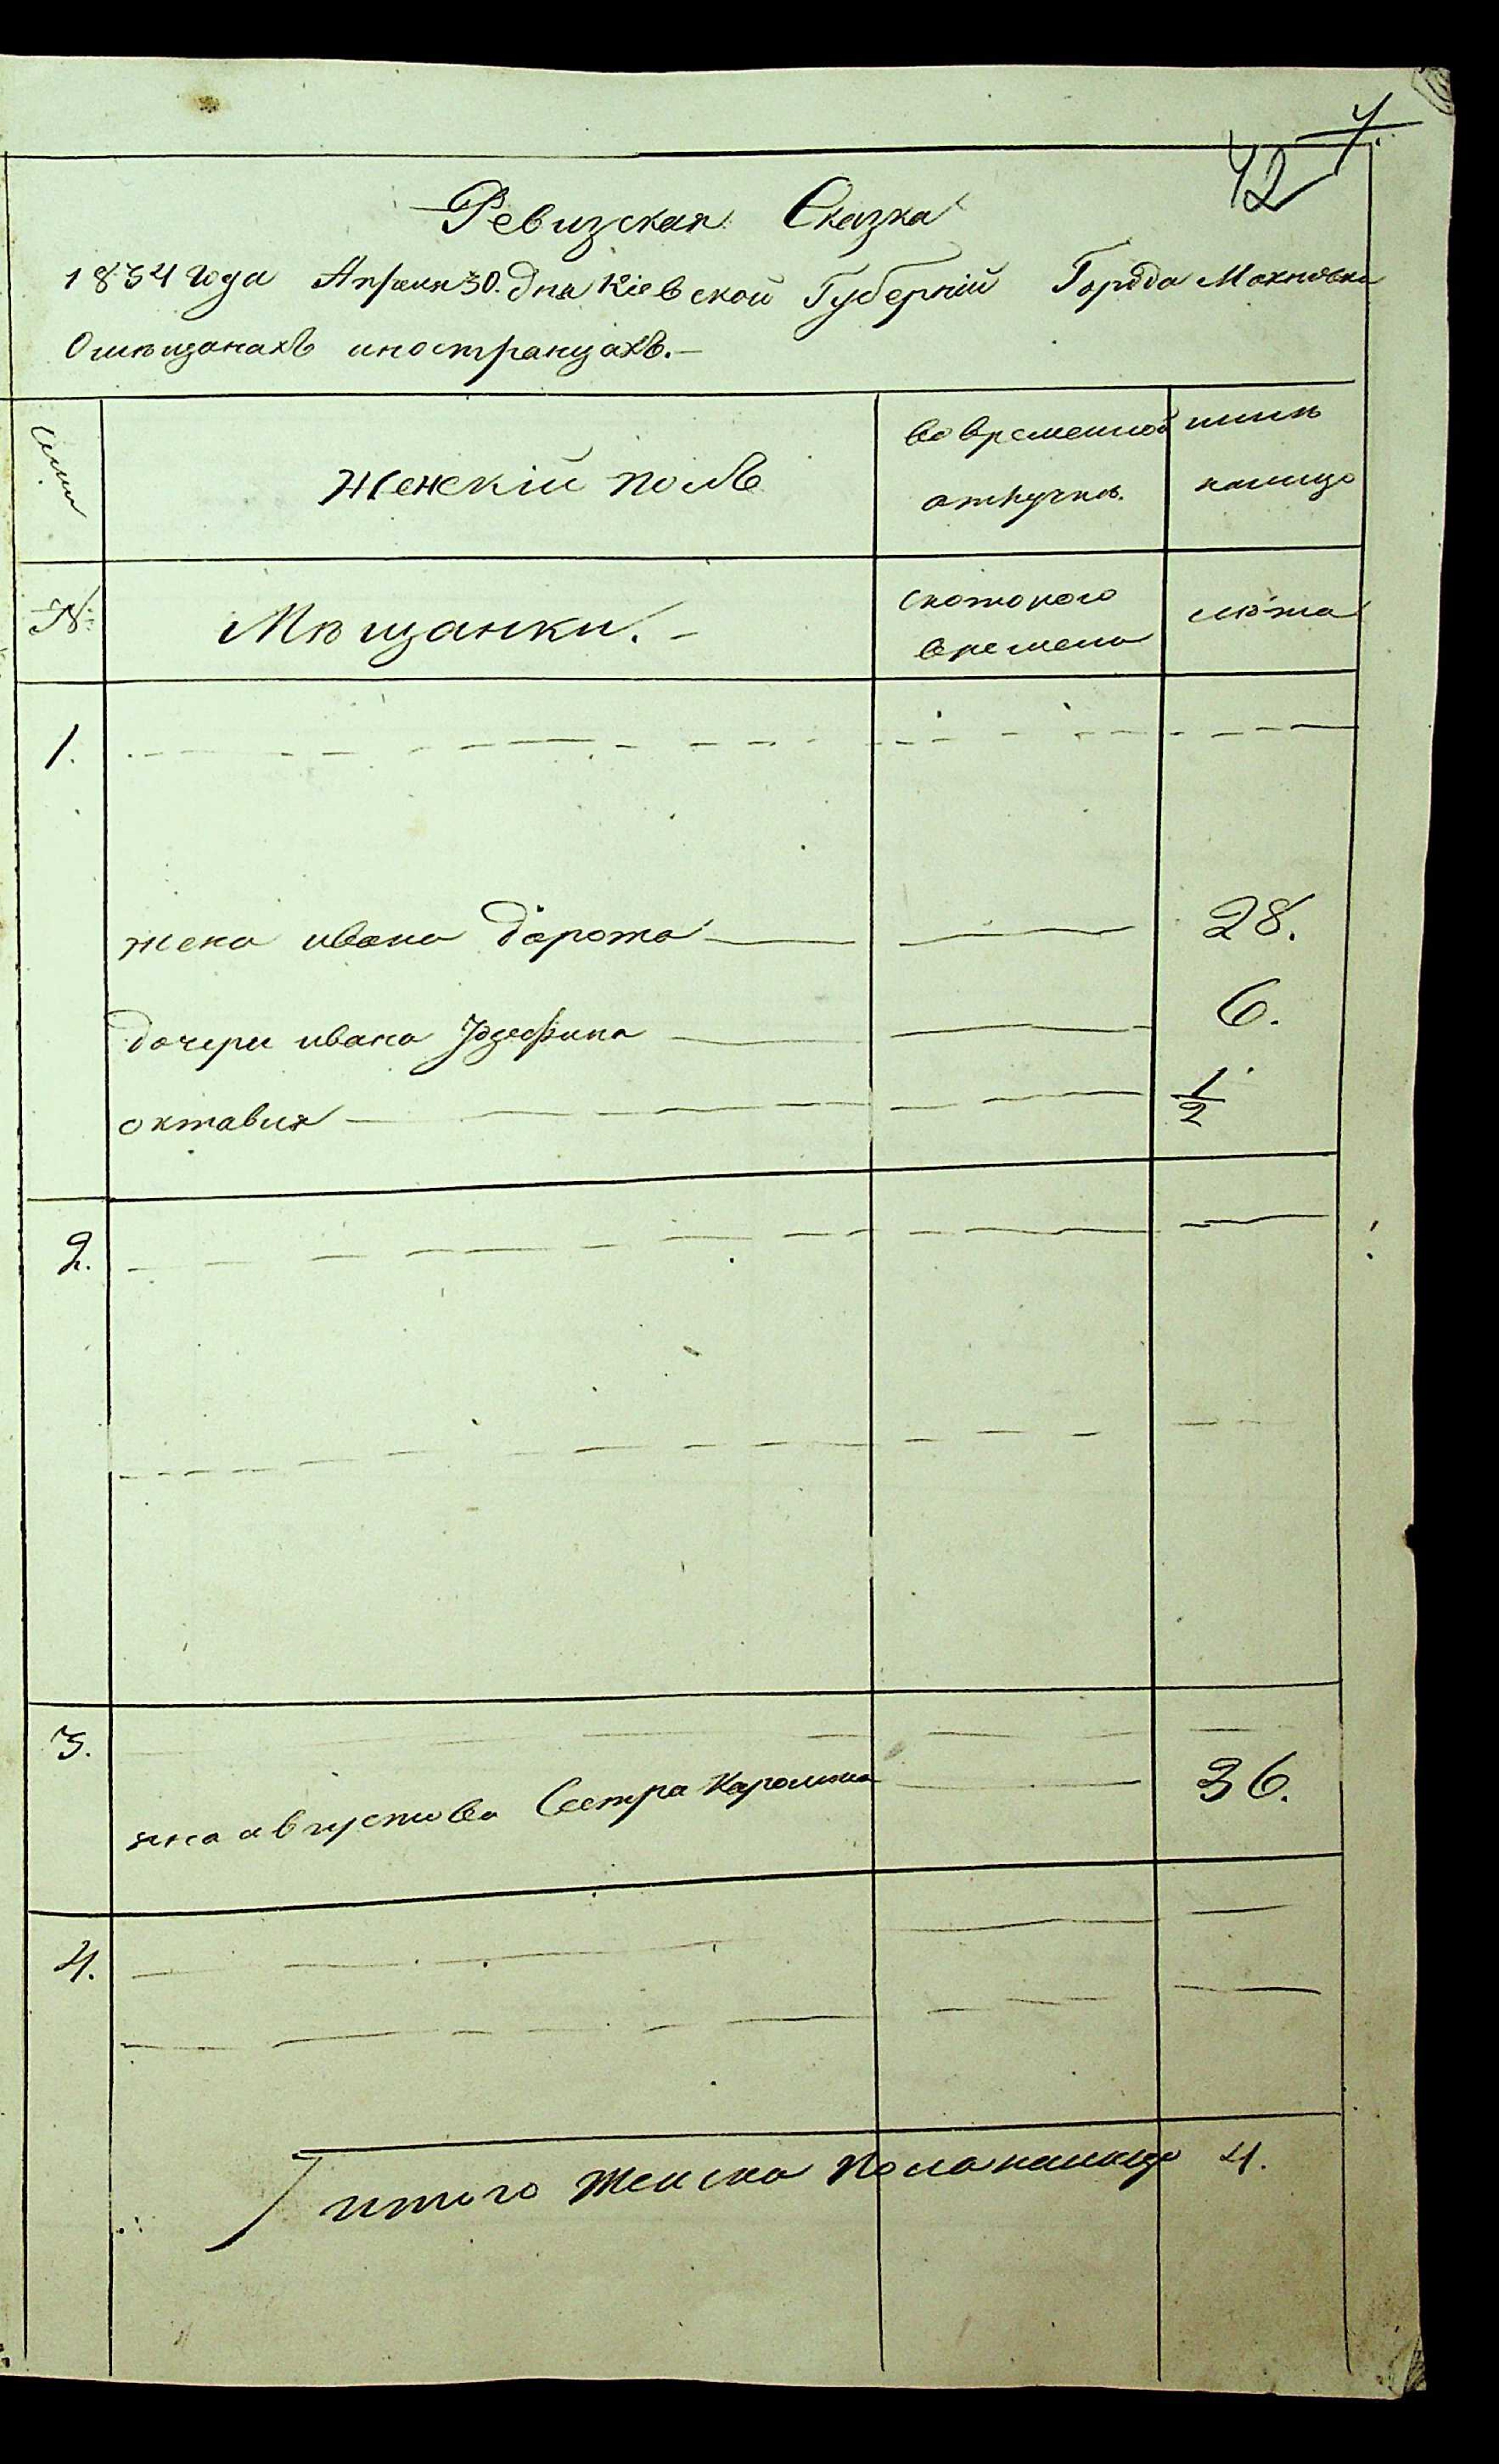 4
42
Ревизская Сказка
1834 года Апреля 30. дня Кіевской Губерніи Города Махновки
О мѣщанахъ иностранцахъ.—
Семьи
Женскій полъ
Во временной
отлучкѣ.
нынѣ
налицо
№:
Мѣщанки.—
Съ котораго
времени
лѣта
1.
жена ивана Дорота
28.
дочери ивана Юзефина
6.
октавия
1/2
2.
3.
августова Сестра Каролина
36.
4.
итого женска пола налицо 4.